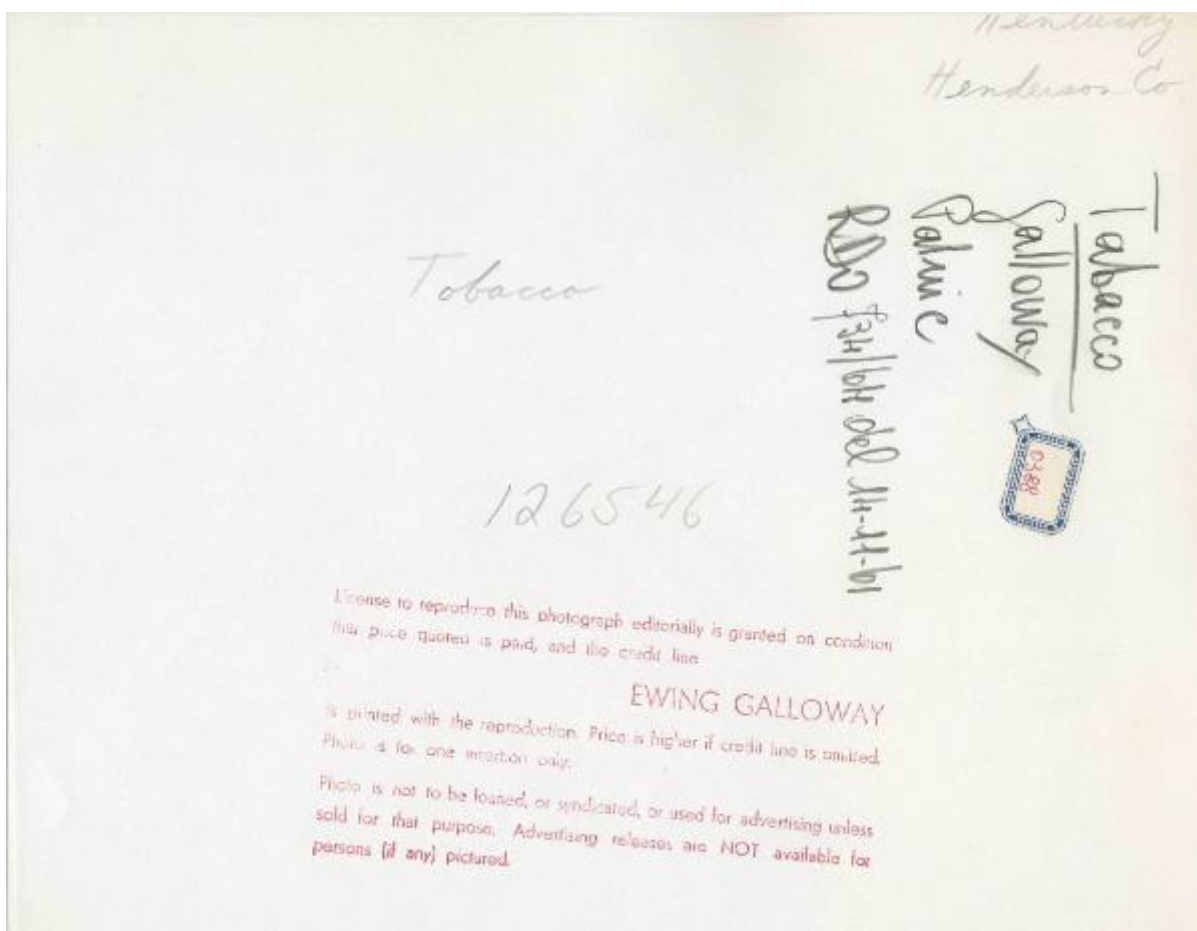 Kentucky
Henderson Co
Tabacco
Galloway
Tobacco
0388
126546
License to reproduce this photograph editorially is granted on condition
that price quoted is paid, and the credit line
EWING GALLOWAY
is printed with the reproduction. Price is higher if credit line is omitted.
Photo is for one insertion only.
Photo is not to be loaned, or syndicated, or used for advertising unless
sold for that purpose. Advertising releases are NOT available for
persons (if any) pictured.